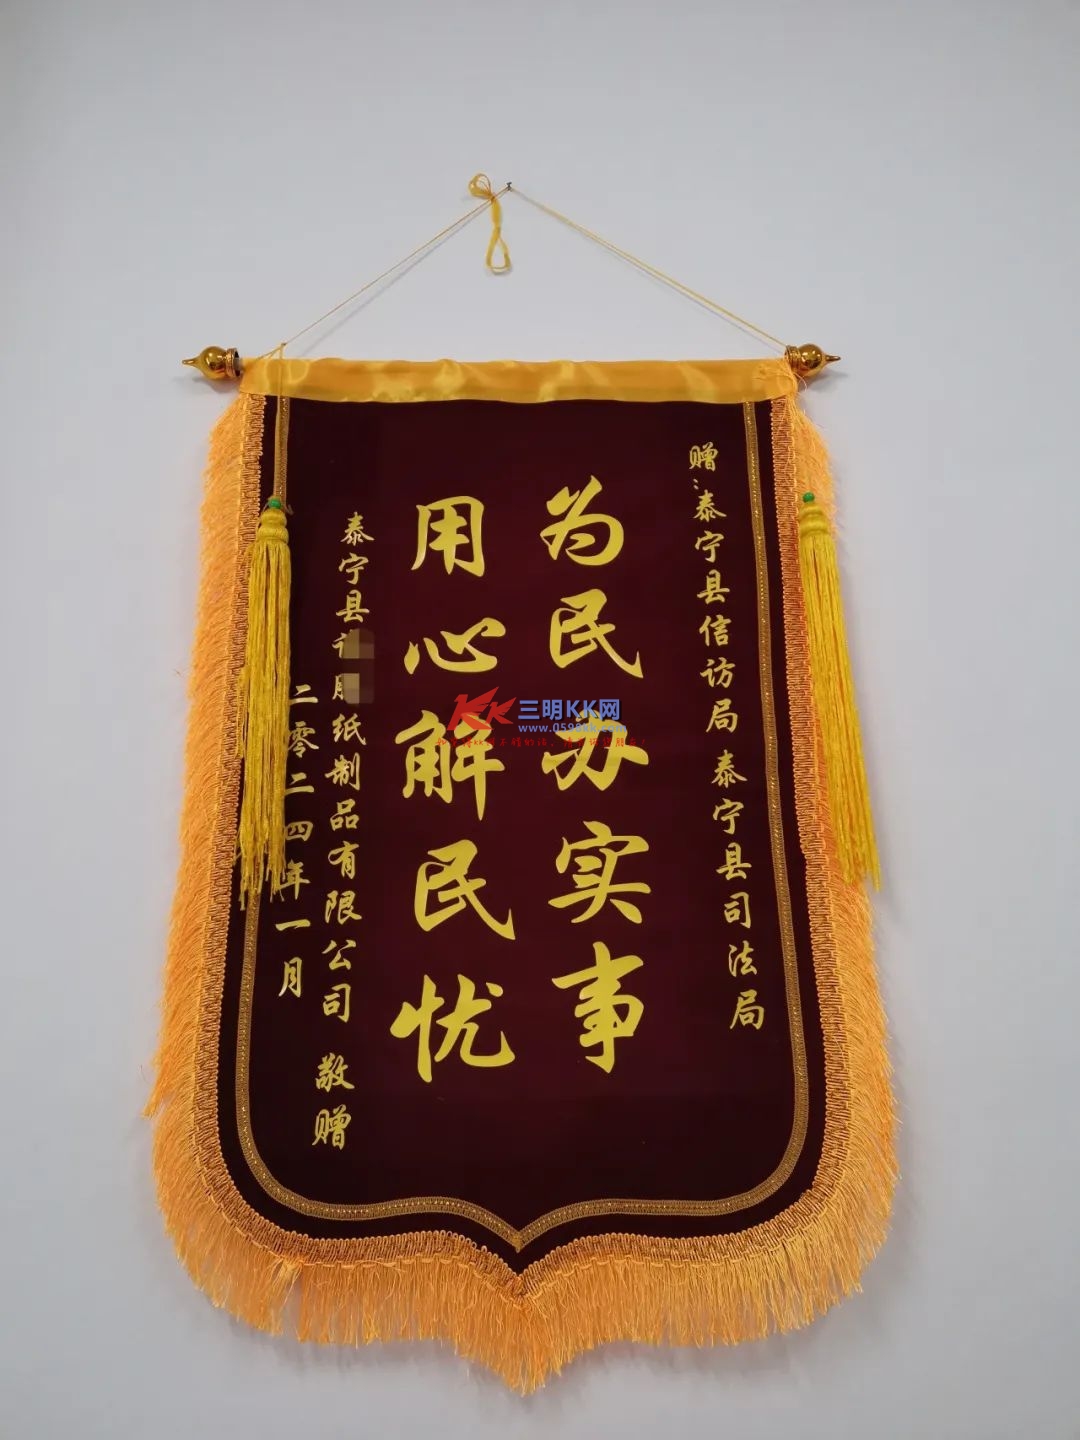 赠：泰宁县信访局 泰宁县司法局
为民办实事
用心解民忧
泰宁县 纸制品有限公司 敬赠
二零二四年一月
三明KK网